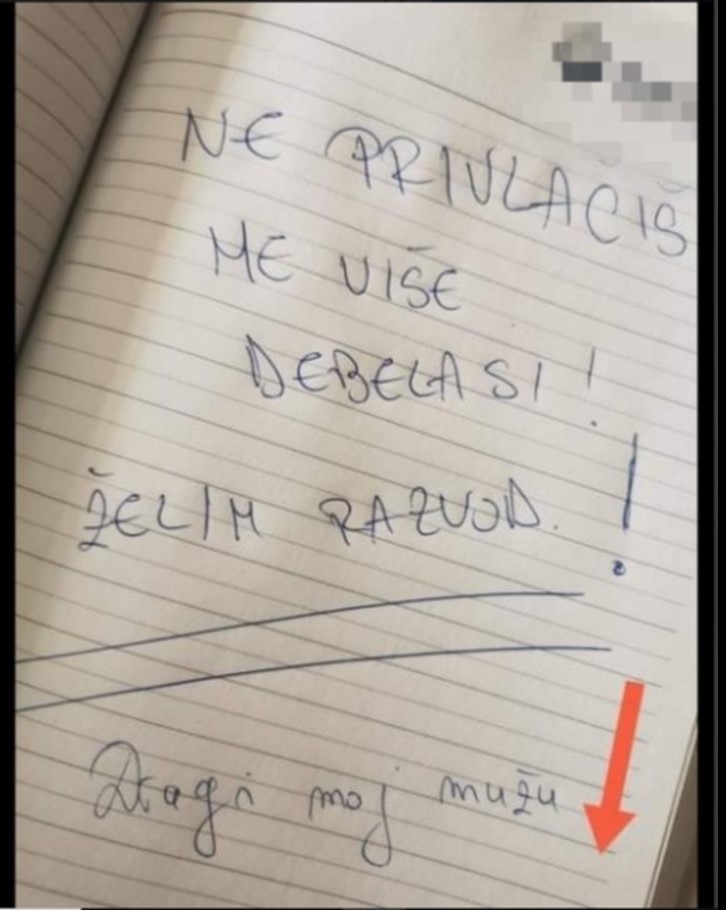 NE PRIVLAČIŠ
ME VIŠE
DEBELA SI!
ŽELIM RAZVOD.!
Dragi moj mužu